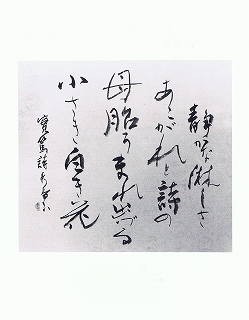 静かな淋しさ
あこがれと詩の
母胎ようまれ出づる
小さき白き花
實篤詩